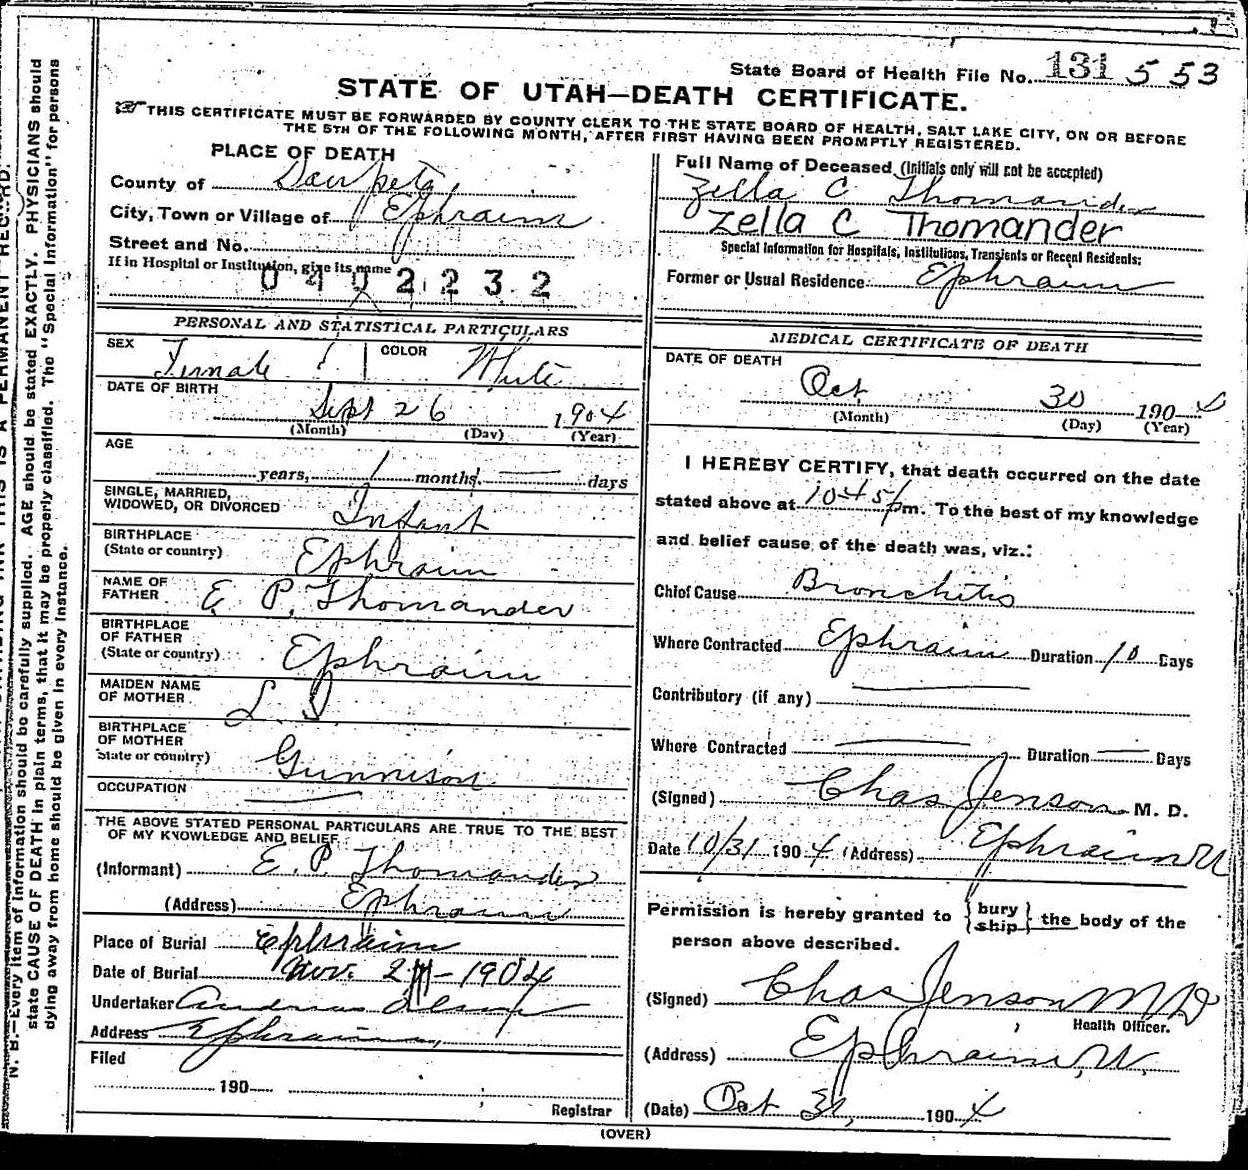 State Board of Health File No. 131 553
STATE OF UTAH—DEATH CERTIFICATE.
THIS CERTIFICATE MUST BE FORWARDED BY COUNTY CLERK TO THE STATE BOARD OF HEALTH, SALT LAKE CITY, ON OR BEFORE
THE 5TH OF THE FOLLOWING MONTH, AFTER FIRST HAVING BEEN PROMPTLY REGISTERED.
PLACE OF DEATH
County of Sanpete,
City, Town or Village of Ephraim
Street and No.
If in Hospital or Institution, give its name
0402232
Full Name of Deceased (Initials only will not be accepted)
Zella C Thomander
Zella C Thomander
Special Information for Hospitals, Institutions, Transients or Recent Residents:
Former or Usual Residence Ephraim
PERSONAL AND STATISTICAL PARTICULARS
SEX Female COLOR White
DATE OF BIRTH
Sept 26 1904
(Month) (Day) (Year)
AGE
years, 1 months, — days
SINGLE, MARRIED,
WIDOWED, OR DIVORCED Infant
BIRTHPLACE
(State or country) Ephraim
NAME OF
FATHER E. P. Thomander
BIRTHPLACE
OF FATHER
(State or country) Ephraim
MAIDEN NAME
OF MOTHER
BIRTHPLACE
OF MOTHER
State or country) Gunnison
OCCUPATION —
THE ABOVE STATED PERSONAL PARTICULARS ARE TRUE TO THE BEST
OF MY KNOWLEDGE AND BELIEF
(Informant) E. P. Thomander
(Address) Ephraim
Place of Burial Ephraim
Date of Burial Nov. 2 - 1904
Undertaker Andrew Olsen
Address Ephraim,
Filed
190
Registrar
MEDICAL CERTIFICATE OF DEATH
DATE OF DEATH
Oct 30 1904
(Month) (Day) (Year)
I HEREBY CERTIFY, that death occurred on the date
stated above at 10 45 pm. To the best of my knowledge
and belief cause of the death was, viz.:
Chief Cause Bronchitis
Where Contracted Ephraim Duration 10 Days
Contributory (if any) —
Where Contracted — Duration — Days
(Signed) Chas Jenson M. D.
Date 10/31 1904 (Address) Ephraim U
Permission is hereby granted to {bury ship} the body of the
person above described.
(Signed) Chas Jenson MD
Health Officer.
(Address) Ephraim, U.
(Date) Oct 31, 1904
(OVER)
N. B.—Every item of information should be carefully supplied. AGE should be stated EXACTLY. PHYSICIANS should
state CAUSE OF DEATH in plain terms, that it may be properly classified. The "Special Information" for persons
dying away from home should be given in every instance.